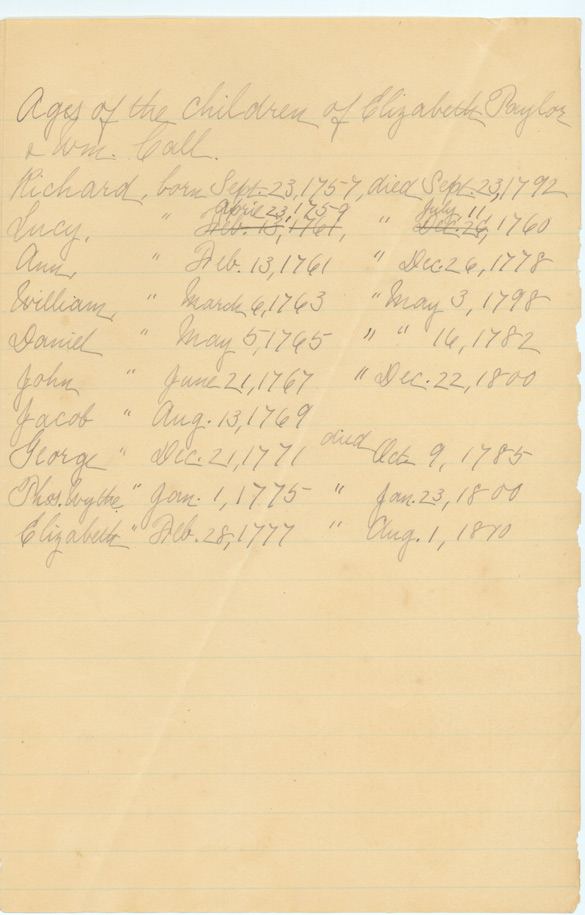 Ages of the children of Elizabeth Taylor
& Wm. Call.
Richard, born Sept. 23, 1757, died Sept. 23, 1792
April 23, 1759 July 11,
Lucy, " Feb. 13, 1761, " Dec. 26, 1760
Ann, " Feb. 13, 1761 " Dec 26, 1778
William, " March 6, 1763 " May 3, 1798
Daniel " May 5, 1765 " " 16, 1782
John " June 21, 1767 " Dec. 22, 1800
Jacob " Aug. 13, 1769
George " Dec. 21, 1771 died Oct. 9, 1785
Thos. Wythe, " Jan. 1, 1775 " Jan. 23, 1800
Elizabeth " Feb. 28, 1777 " Aug. 1,